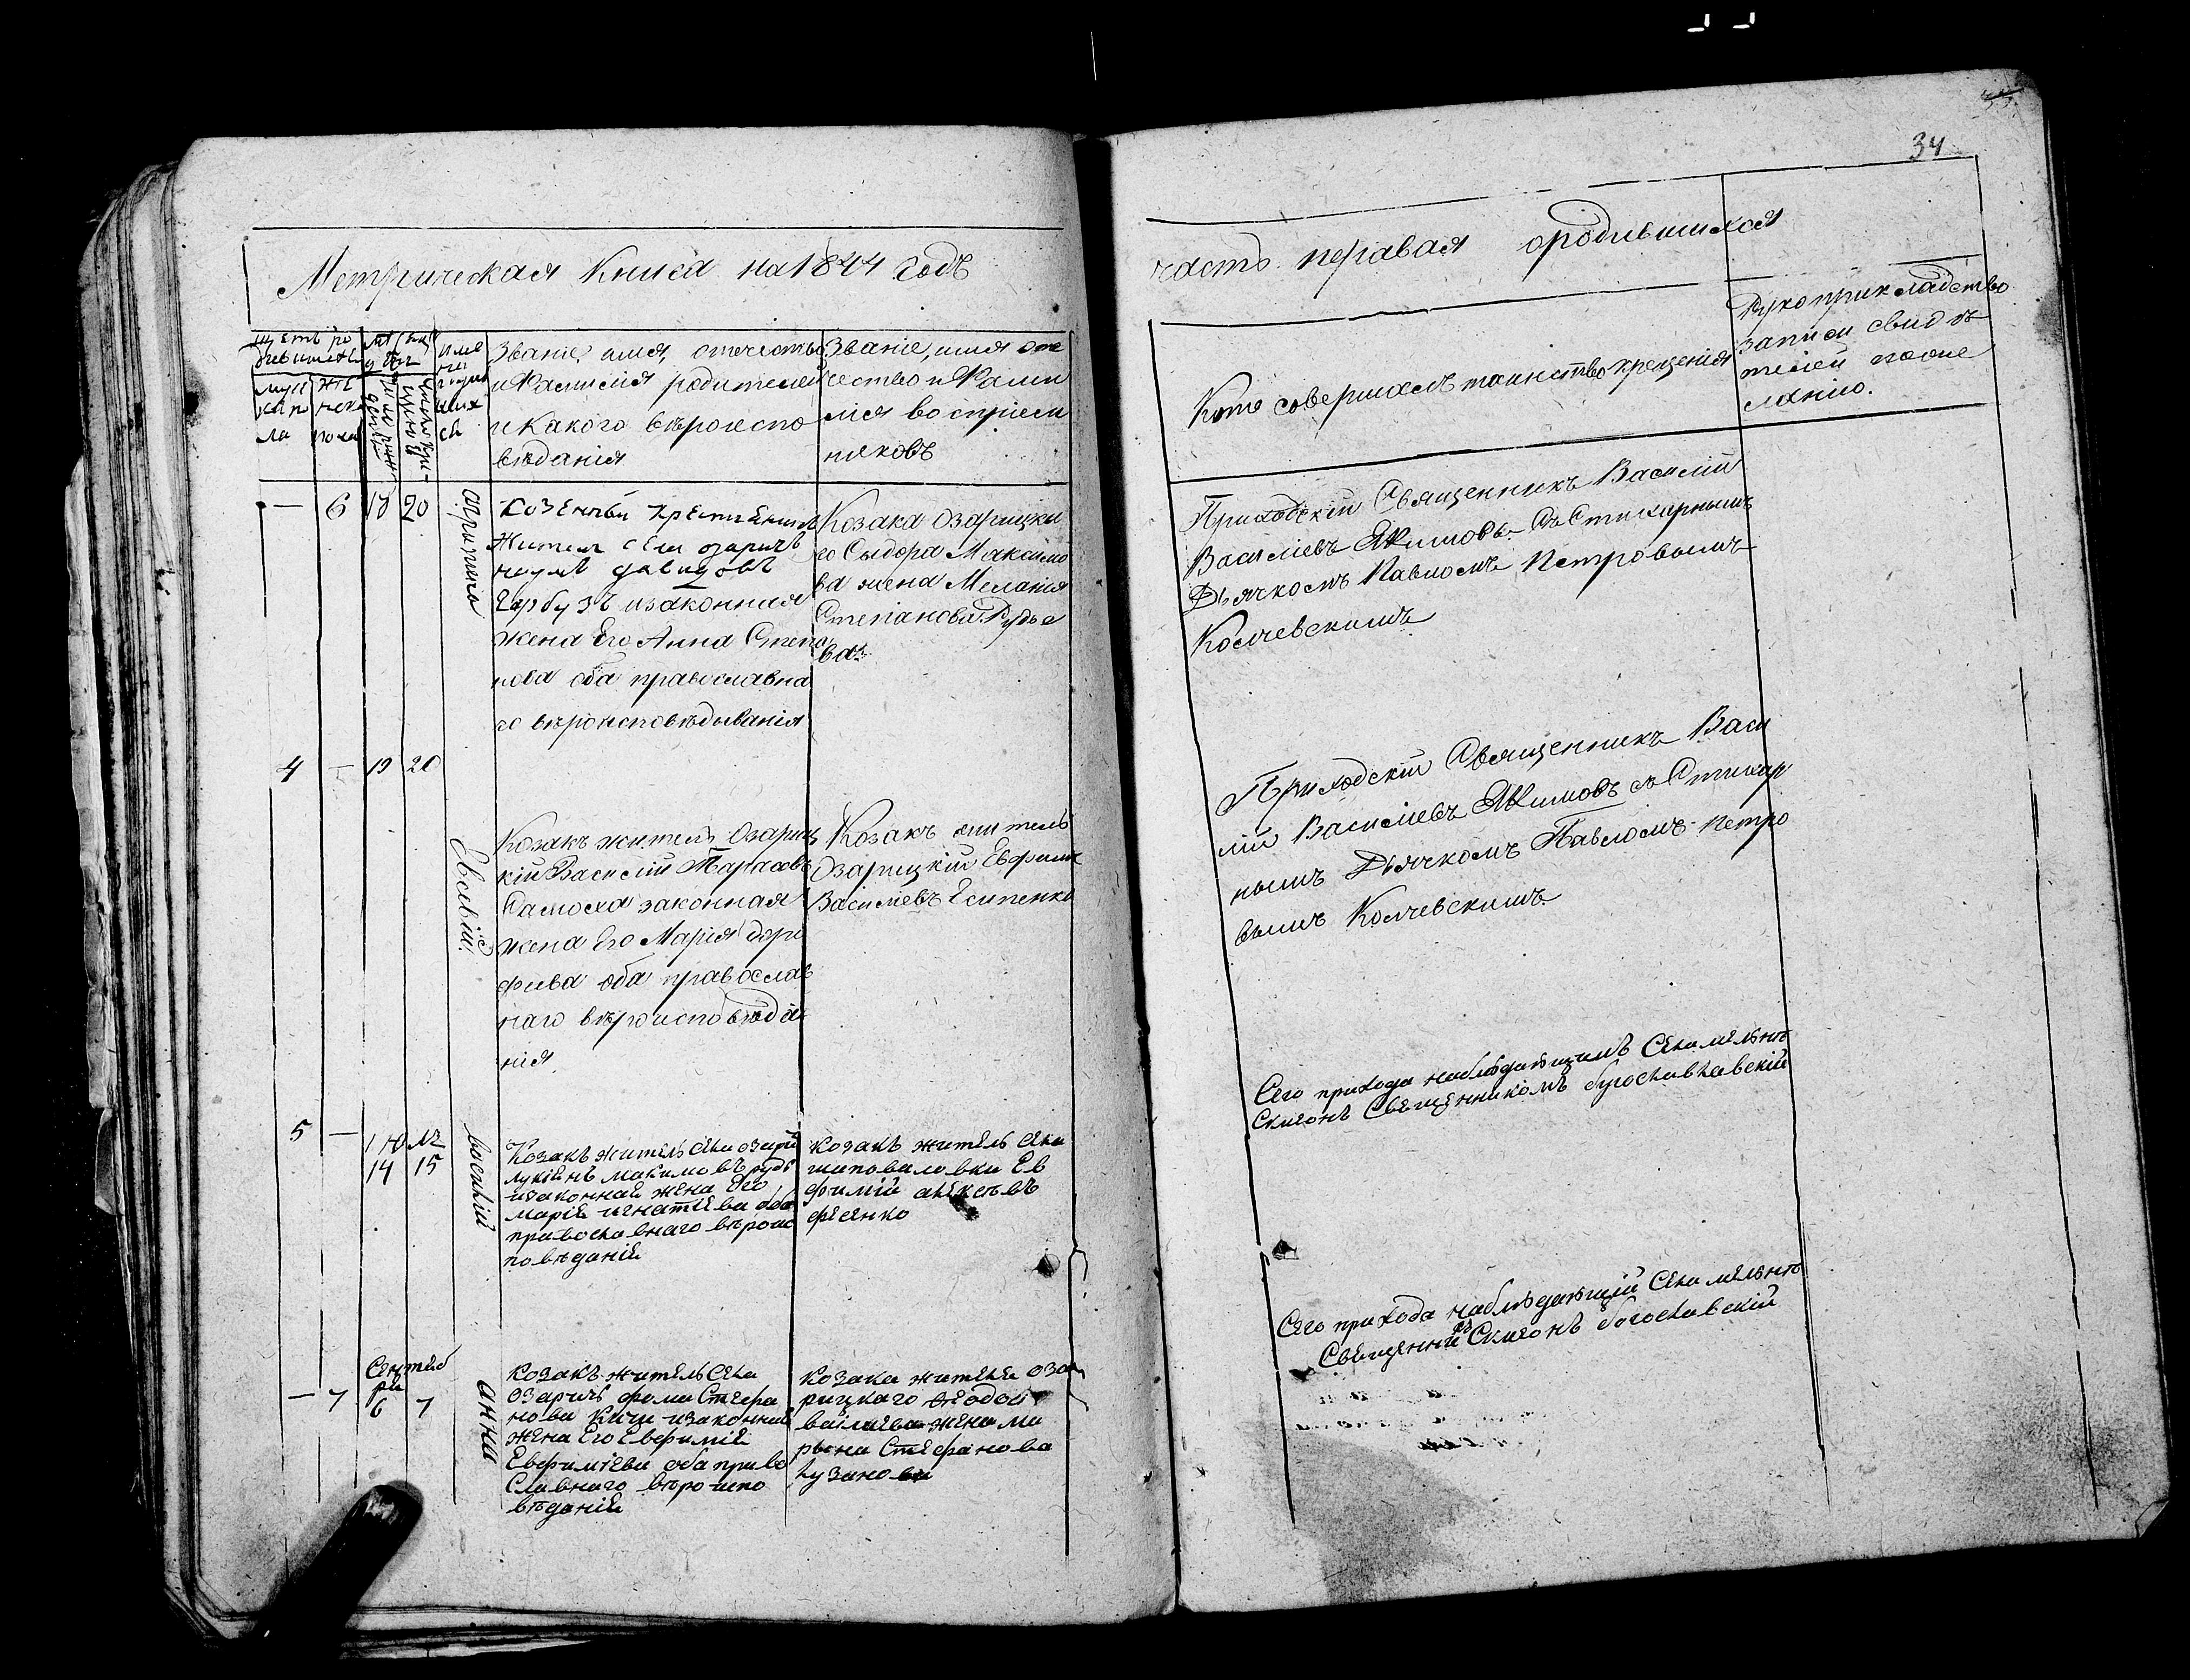 34
Метрическая Книга на 1844 годъ
часть перавая ородившихся
щетъ ро
дившихся
муж
ска по
ла
же
нска
пола
Званіе, имя, отечество
и Фамилія родителей
и Какого вѣроиспо
вѣданія
Званіе, имя оте
чество и Фами
лія воспріем
никовъ
Кто совершалъ таинство крещенія
Рукоприкладство
записи свидѣ
телей поже
ланію.
— 6 18 20
Козенный крестьянинъ
Жител села озаричъ
наумъ давидовъ
Гарбузъ изаконная
жена Его Анна Степа
нова оба православна
го вѣроисповѣдыванія
Козака Озарицка
го Сыдора Максимо
ва жена Меланія
Степанова Рудье
ва
Приходскій Священникъ Василій
Василіевъ Якимовъ Съ Стихарнымъ
Дьячкомъ Павломъ Петровымъ
Колчевскимъ
4 — 19 20
Евсевій
Козакъ житель Озариц
кій Василій Тарасовъ
Самоха законная
жена Его Марія доро
фиева оба православ
наго вѣроисповѣда
нія
Козакъ житель
Озарицкій Евфимъ
Василіевъ Есипенко
Приходскій Священникъ Васи
лій Василіевъ Якимовъ съ Стихар
нымъ Дьячкомъ Павломъ Петро
вымъ Колчевскимъ
5 —
Юль
14 15
Козакъ житель села озари
лукіянъ макимовъ рудь
изаконная жена его
марія игнатіева оба
православнаго вѣроис
повѣданія
козакъ житель села
шаповаловки Ев
фимій алексѣвъ
фесенко
Сего прихода наблюдающимъ Села мельнѣ
Симеонъ Священникомъ
Сентяб
ря
— 7 6 7
анна
козакъ житель села
озаричъ фома Стефа
нова Кичи изаконная
жена Его Евфимія
Евфимтеви оба право
Славнаго вѣроиспо
вѣданія
козака жителя оза
рицкаго
жена ма
рьяна Стефанова
Лузанова
Сего прихода наблюдающій Села мельнѣ
Священникъ Симеонъ богославскій